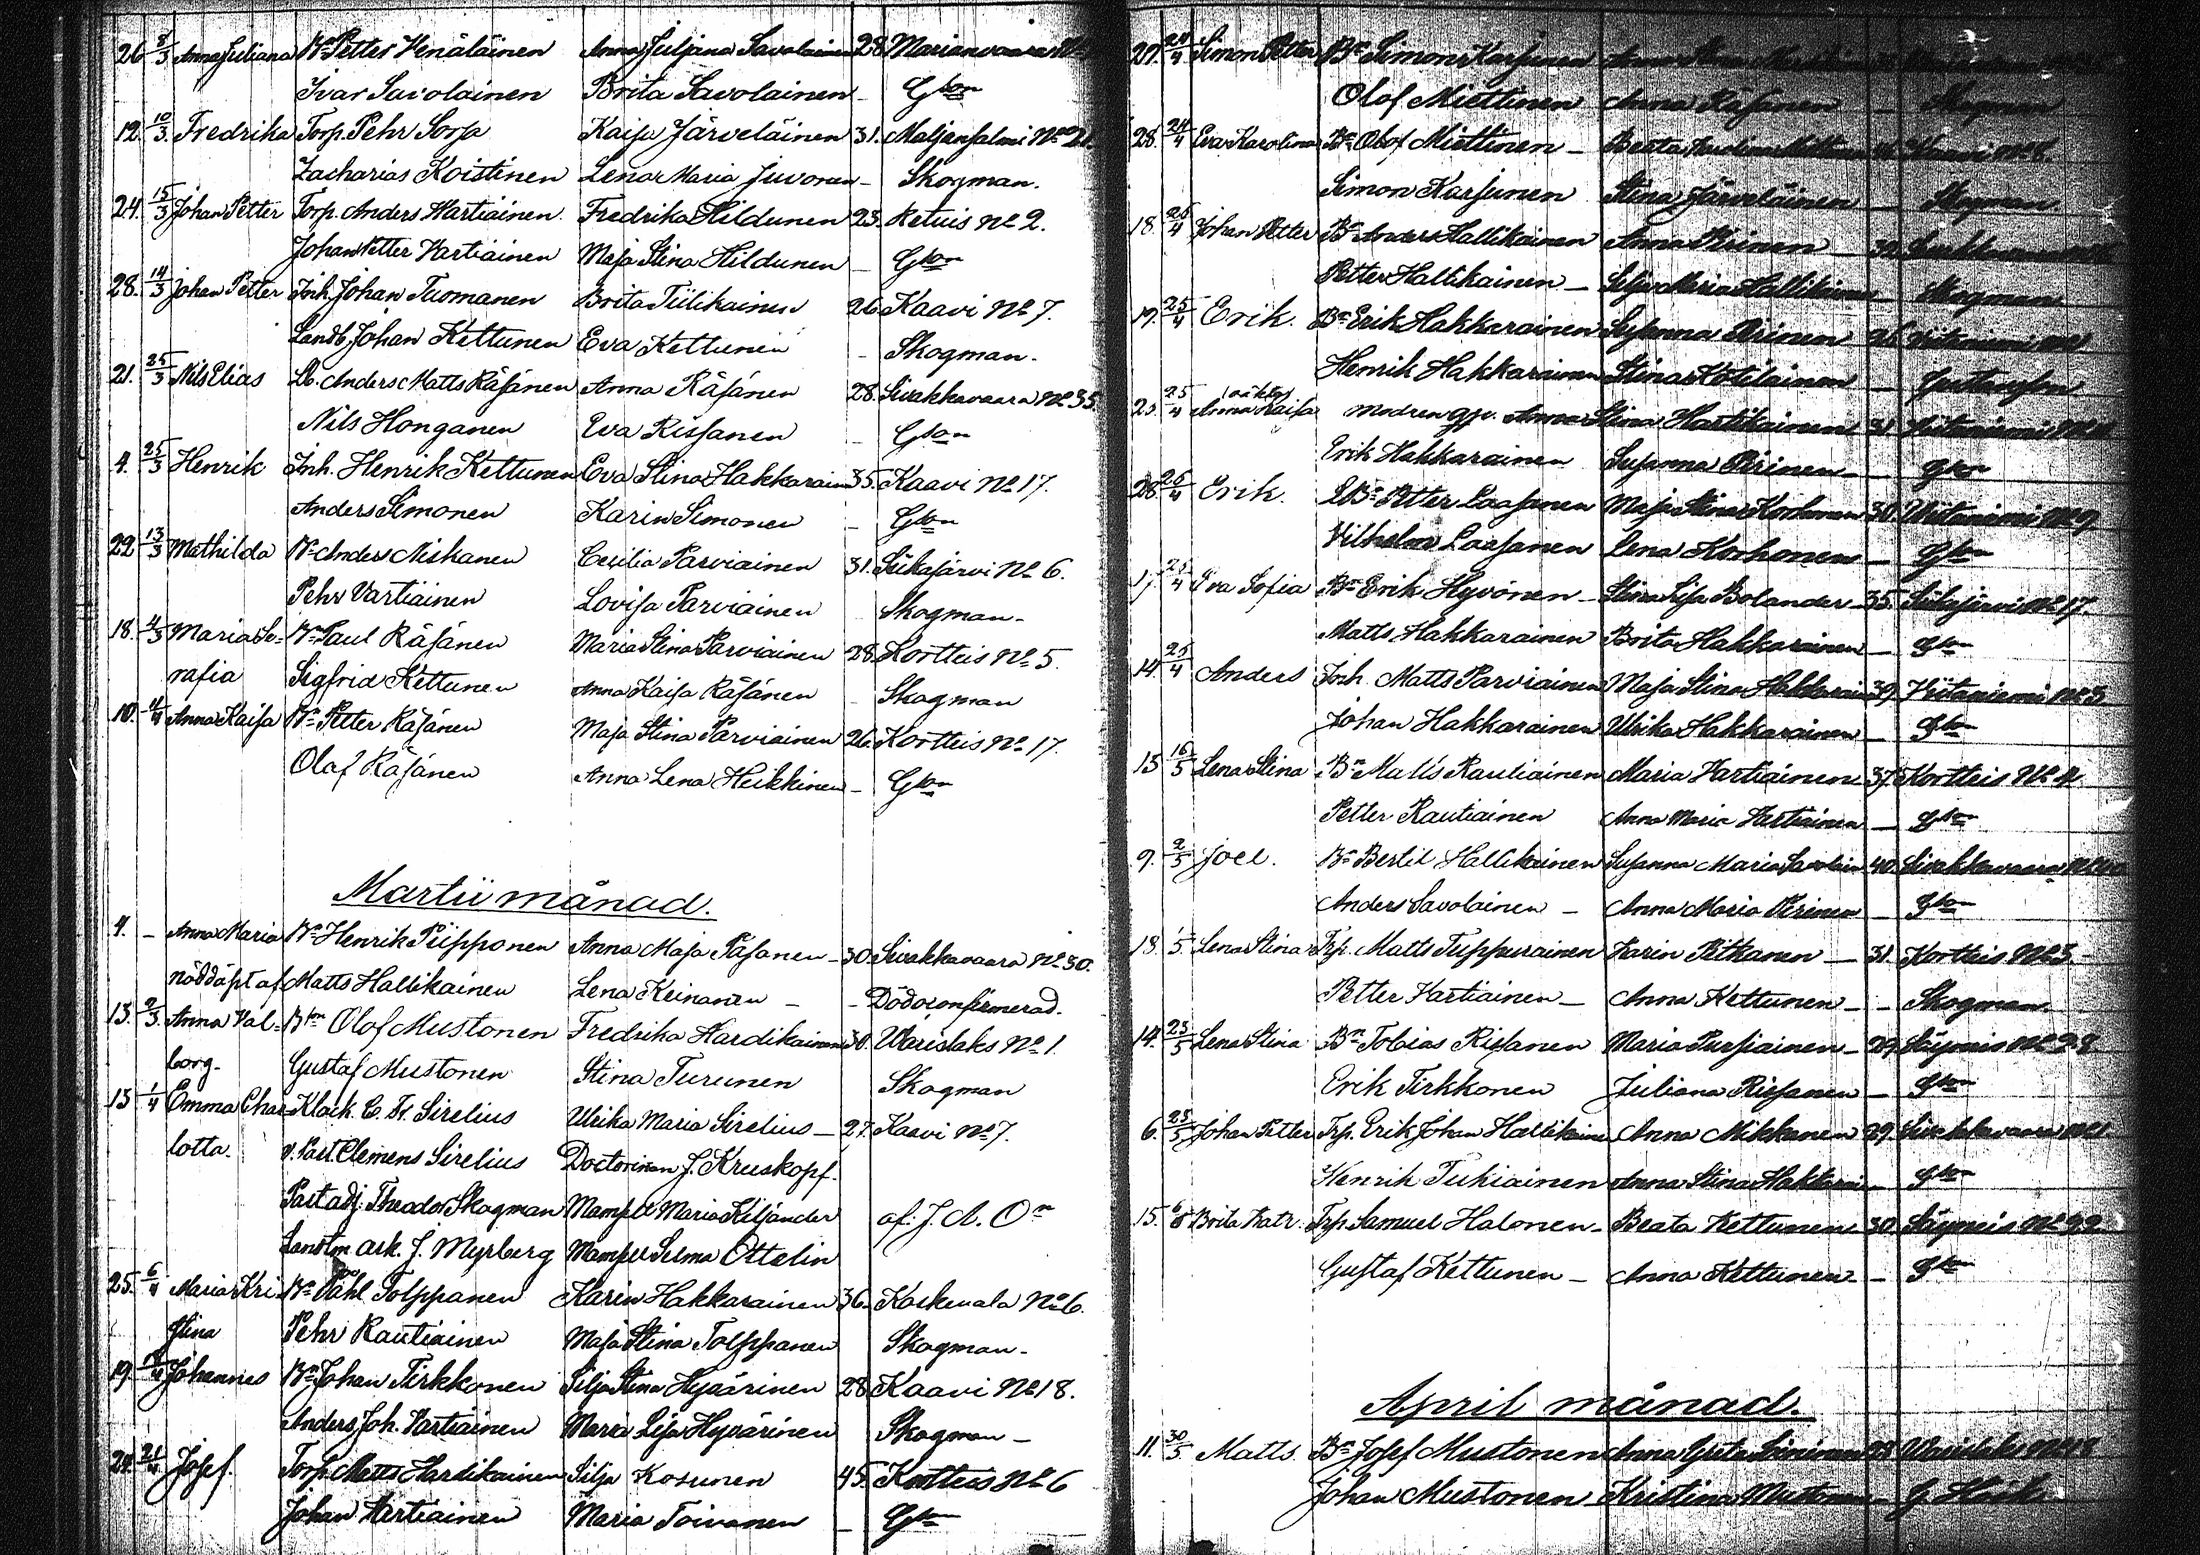 26 8/3 Anna Juliana Bn Petter Venäläinen Anna Juliana Savolainen 28. Marianvaara No
Ivar Savolainen Brita Savolainen - Gson
12. 10/3. Fredrika Torp. Pehr Sorsa Kaisa Järveläinen 31. Maljansalmi No 21.
Zacharias Koistinen Lena Maria Juvonen - Skogman.
24. 15/3 Johan Petter Torp. Anders Martiainen. Fredrika Hildunen 23. Retuis No 2.
Johan Petter Vartiainen Maja Stina Hildunen - Gson
28. 14/3 Johan Petter Inh. Johan Tuomanen Brita Tiilikainen 26. Kaavi No 7.
Landb. Johan Kettunen Eva Kettunen - Skogman.
21. 25/3 Nils Elias Lb. Anders Matts Räsänen Anna Räsänen 28. Sivakkavaara No 35.
Nils Honganen Eva Rissanen - Gson
4. 25/3 Henrik Inh. Henrik Kettunen Eva Stina Hakkarain 35. Kaavi No 17.
Anders Simonen Karin Simonen - Gson
22 13/3 Mathilda Bn Anders Niskanen Cecilia Parviainen 31. Siikajärvi No 6.
Pehr Vartiainen Lovisa Parviainen Skogman-
18. 4/3 Maria Se= Bn Paul Räsänen Maria Stina Parviainen 28. Kortteis No 5.
rafia Sigfrid Kettunen Anna Kaisa Räsänen Skogman
10. 4/4 Anna Kaisa Bn Petter Räsänen Maja Stina Parviainen 26. Kortteis No 17.
Olaf Räsänen Anna Lena Heikkinen - Gson
Martii månad.
4. - Anna Maria Bn Henrik Piipponen Anna Maja Pasanen - 30. Sivakkavaara No 30.
nöddöpt af Matts Hallikainen Lena Keinanen - - Död o confirmerad.
13. 2/3. Anna Val= Bon Olof Mustonen Fredrika Hardikainen 30. Warislaks No 1.
borg- Gustaf Mustonen Stina Turunen Skogman
13 1/4 Emma Char Klock. C. Fr. Sirelius Ulrika Maria Sirelius - 27. Kaavi No 7.
lotta. v. Past. Clemens Sirelius Doctorinan J. Kruskopf.
Past adj. Theodor Skogman Mamsell Maria Kiljander af. J. A. On
Landtm. ask. J. Myrberg Mamsell Selma Ottelin
25. 6/4 Maria Kri Bn Påhl Tolppanen Karin Hakkarainen 36. Koskenala No 6.
stina Pehr Rautiainen Maja Stina Tolppanen Skogman-
19. Johannes Bn Johan Tirkkonen Silja Stina Hyvärinen 28 Kaavi No 18.
Anders Joh. Vartiainen Maria Lisa Hyvärinen Skogman -
24. 21/4. Josef. Torp. Matts Hardikainen Silja Kosunen 45. Kortteis No 6
Johan Vertiainen Maria Toivanen - Gson
27. 24/4 Simon Petter Bn Simon Karsunen
Olof Miettinen Anna Räsänen - Skogman
28. 24/4 Eva Karolina Bn Olof Miettinen - Beata Kaavi No 8.
Simon Karsunen Stina Järveläinen - Skogman.
18. 25/4 Johan Petter Bn Anders Hallikainen Anna Pirinen
Petter Hallikainen - Silja Maria Hallikainen - Skogman
19. 25/4 Erik. Bn Erik Hakkarainen Susanna Pirinen 26.
Henrik Hakkarainen Stina Kotilainen - Gustafson
25. 25/4 Anna Kaisa (oäkta) modren gp. Anna Stina Hartikainen 31. Viitaniemi No
Erik Hakkarainen Susanna Pirinen - Gson
28. 26/4 Erik. Bn Petter Laasanen Maja Stina Korhonen 30. Viitaniemi No 9.
Vilhelm Laasanen Lena Korhonen - Gson
17. 25/4 Eva Sofia Bn Erik Hyvönen - Stina Lisa Bolander - 35. Siikajärvi No 17.
Matts Hakkarainen Brita Hakkarainen - Gson
14. 25/4 Anders Inh. Matts Parviainen Maja Stina Hakkarain 39. Viitaniemi No 3.
Johan Hakkarainen Ulrika Hakkarainen - Gson
15 16/5 Lena Stina Bn Matts Rautiainen Maria Vartiainen 37. Kortteis No 4.
Petter Rautiainen Anna Maria Vertiainen - Gson
9. 2/5 Joel. Bn Bertil Hallikainen Susanna Maria Savolain 40. Sivakkavaara No
Anders Savolainen - Anna Maria Pirinen - Gson
18. 1/5. Lena Stina Trp. Matts Tuppurainen Karin Pitkanen - 31. Kortteis No 3.
Petter Vartiainen - Anna Kettunen - - Skogman.
14. 23/5 Lena Stina Bn Tobias Rissanen Maria Pursiainen - 29. Säyneis No 28
Erik Tirkkonen Juliana Rissanen - Gson
6. 25/5 Johan Petter Trp. Erik Johan Hallikaine Anna Mikkanen 29. Sivakkavaara No
Henrik Tukiainen Anna Stina Hakkarai - Gson
15. 6/8 Brita Katr. Trp. Samuel Halonen - Beata Kettunen 30. Säyneis No 22.
Gustaf Kettunen - Anna Kettunen - - Gson
April månad.
11. 30/5 Matts. Bn Josef Mustonen Anna Greta Warislaks No
Johan Mustonen Kristina Mustonen